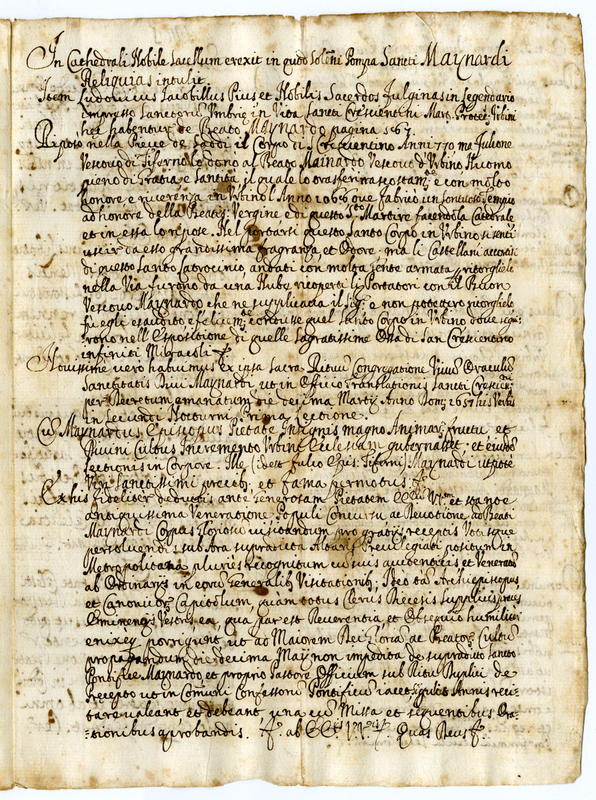 In Cathedrali Nobile Sacellum erexit in quo Solemni Pompa Sancti Maynardi
Reliquias intulit.
Item Ludovicus Iacobillus Pius et Nobilis Sacerdos Fulginas in Legendario
impresso Sanctorum Umbrię in Vita Sancti Crescentini Mart. Protec. Urbini
hęc habentur de Beato Maynardo pagina 167.
Riposò nella Pieve de Saddi il Corpo di S. Crescentino Anni 770 ma Julione
Vescovo di Tiferno lo donò al Beato Mainardo Vescovo d'Urbino Huomo
pieno di Gratia, e Santità, il quale lo trasferì e con molto
honore, e riverenza in Urbino l'Anno 1068 que fabricò un Sontuoso Tempio
ad honore della Beatiss. Vergine e di questo S.to Martire facendola Catedrale
et in essa lo ripose. Nel portarsi questo Santo Corpo in Urbino si sentì
uscir da esso grandissima fragranza, et Odore; ma li Castellani accortisi
di questo Santo latrocinio, andati con molta gente armata p. ritorglielo
nella Via furono da una Nube ricoperti li Portatori con il Buon
Vescovo Maynardo che ne supplicava il Sig.re e non potettero ritorglielo
fu egli esaudito e felicem.te condusse quel Santo Corpo in Urbino dove
nell'Espositione di quelle Sagratissime Ossa di San Crescentino
infiniti Miracoli
Novissime vero habuimus ex ipsa Sacra Rituum Congregatione Vivum Oraculum
Sanctitatis Divi Maynardi, ut in Officio Translationis Sancti Crescen.ni
per Decretum emanatum die decima Martij Anno Dom. 1657 his Verbis
in Secundi Nocturni Prima Lectione.
Cu Maynardus Episcopus Pietate Insignis magno Animar. fructu et
Divini Cultus Incremento Urbini Ecclesiam gubernasset; et eiusdem
Lectionis in Corpore. Ille (idest Julio Epis. Tiferni) Maynardi utpote
Viri Sanctissimi precib. et fama permotus
Ex his fideliter deductis ante Generosam Pietatem et stante
antiquissima Veneratione Populi Concursu ac Devotione ad Beati
Maynardi Corpus Glorioso visitandum pro gratijs receptis Votisque
persolvendis sub Ara supradicta Altaris Previlegiati positum in
Metropolitana pluries recognitum ac suis evidentijs et Veneratum
ab Ordinarijs in eorum Generalib. Visitationib. Ideo tam Archiepiscopus
et Canonicor. Capitulum, quàm totus Clerus Diecesis Supplices preces
Eminentijs Vestris, ea, qua par est Reverentia, et Obsequio humiliter
enixeq. porrigunt ut ad Maiorem Dei Gloria, ac Beator. Cultum
propagandum die decima Maij non impedita de supradicto Sancto
Pontifice Maynardo et proprio Pastore Officium sub Ritu Duplici de
Precepto ut in Comuni Confessoris Pontificis singulis Annis reci-
tare valeant et debeant, una cum Missa et sequentibus Ora-
-tionibus aprobandis. Quas Deus